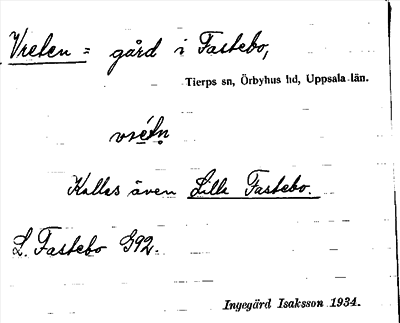 Vreten = gård i Fastebo,
Tierps sn, Örbyhus hd, Uppsala län.
vrétn̥
Kallas även Lilla Fastebo.
L. Fastebo G92.
Ingegärd Isaksson 1934.